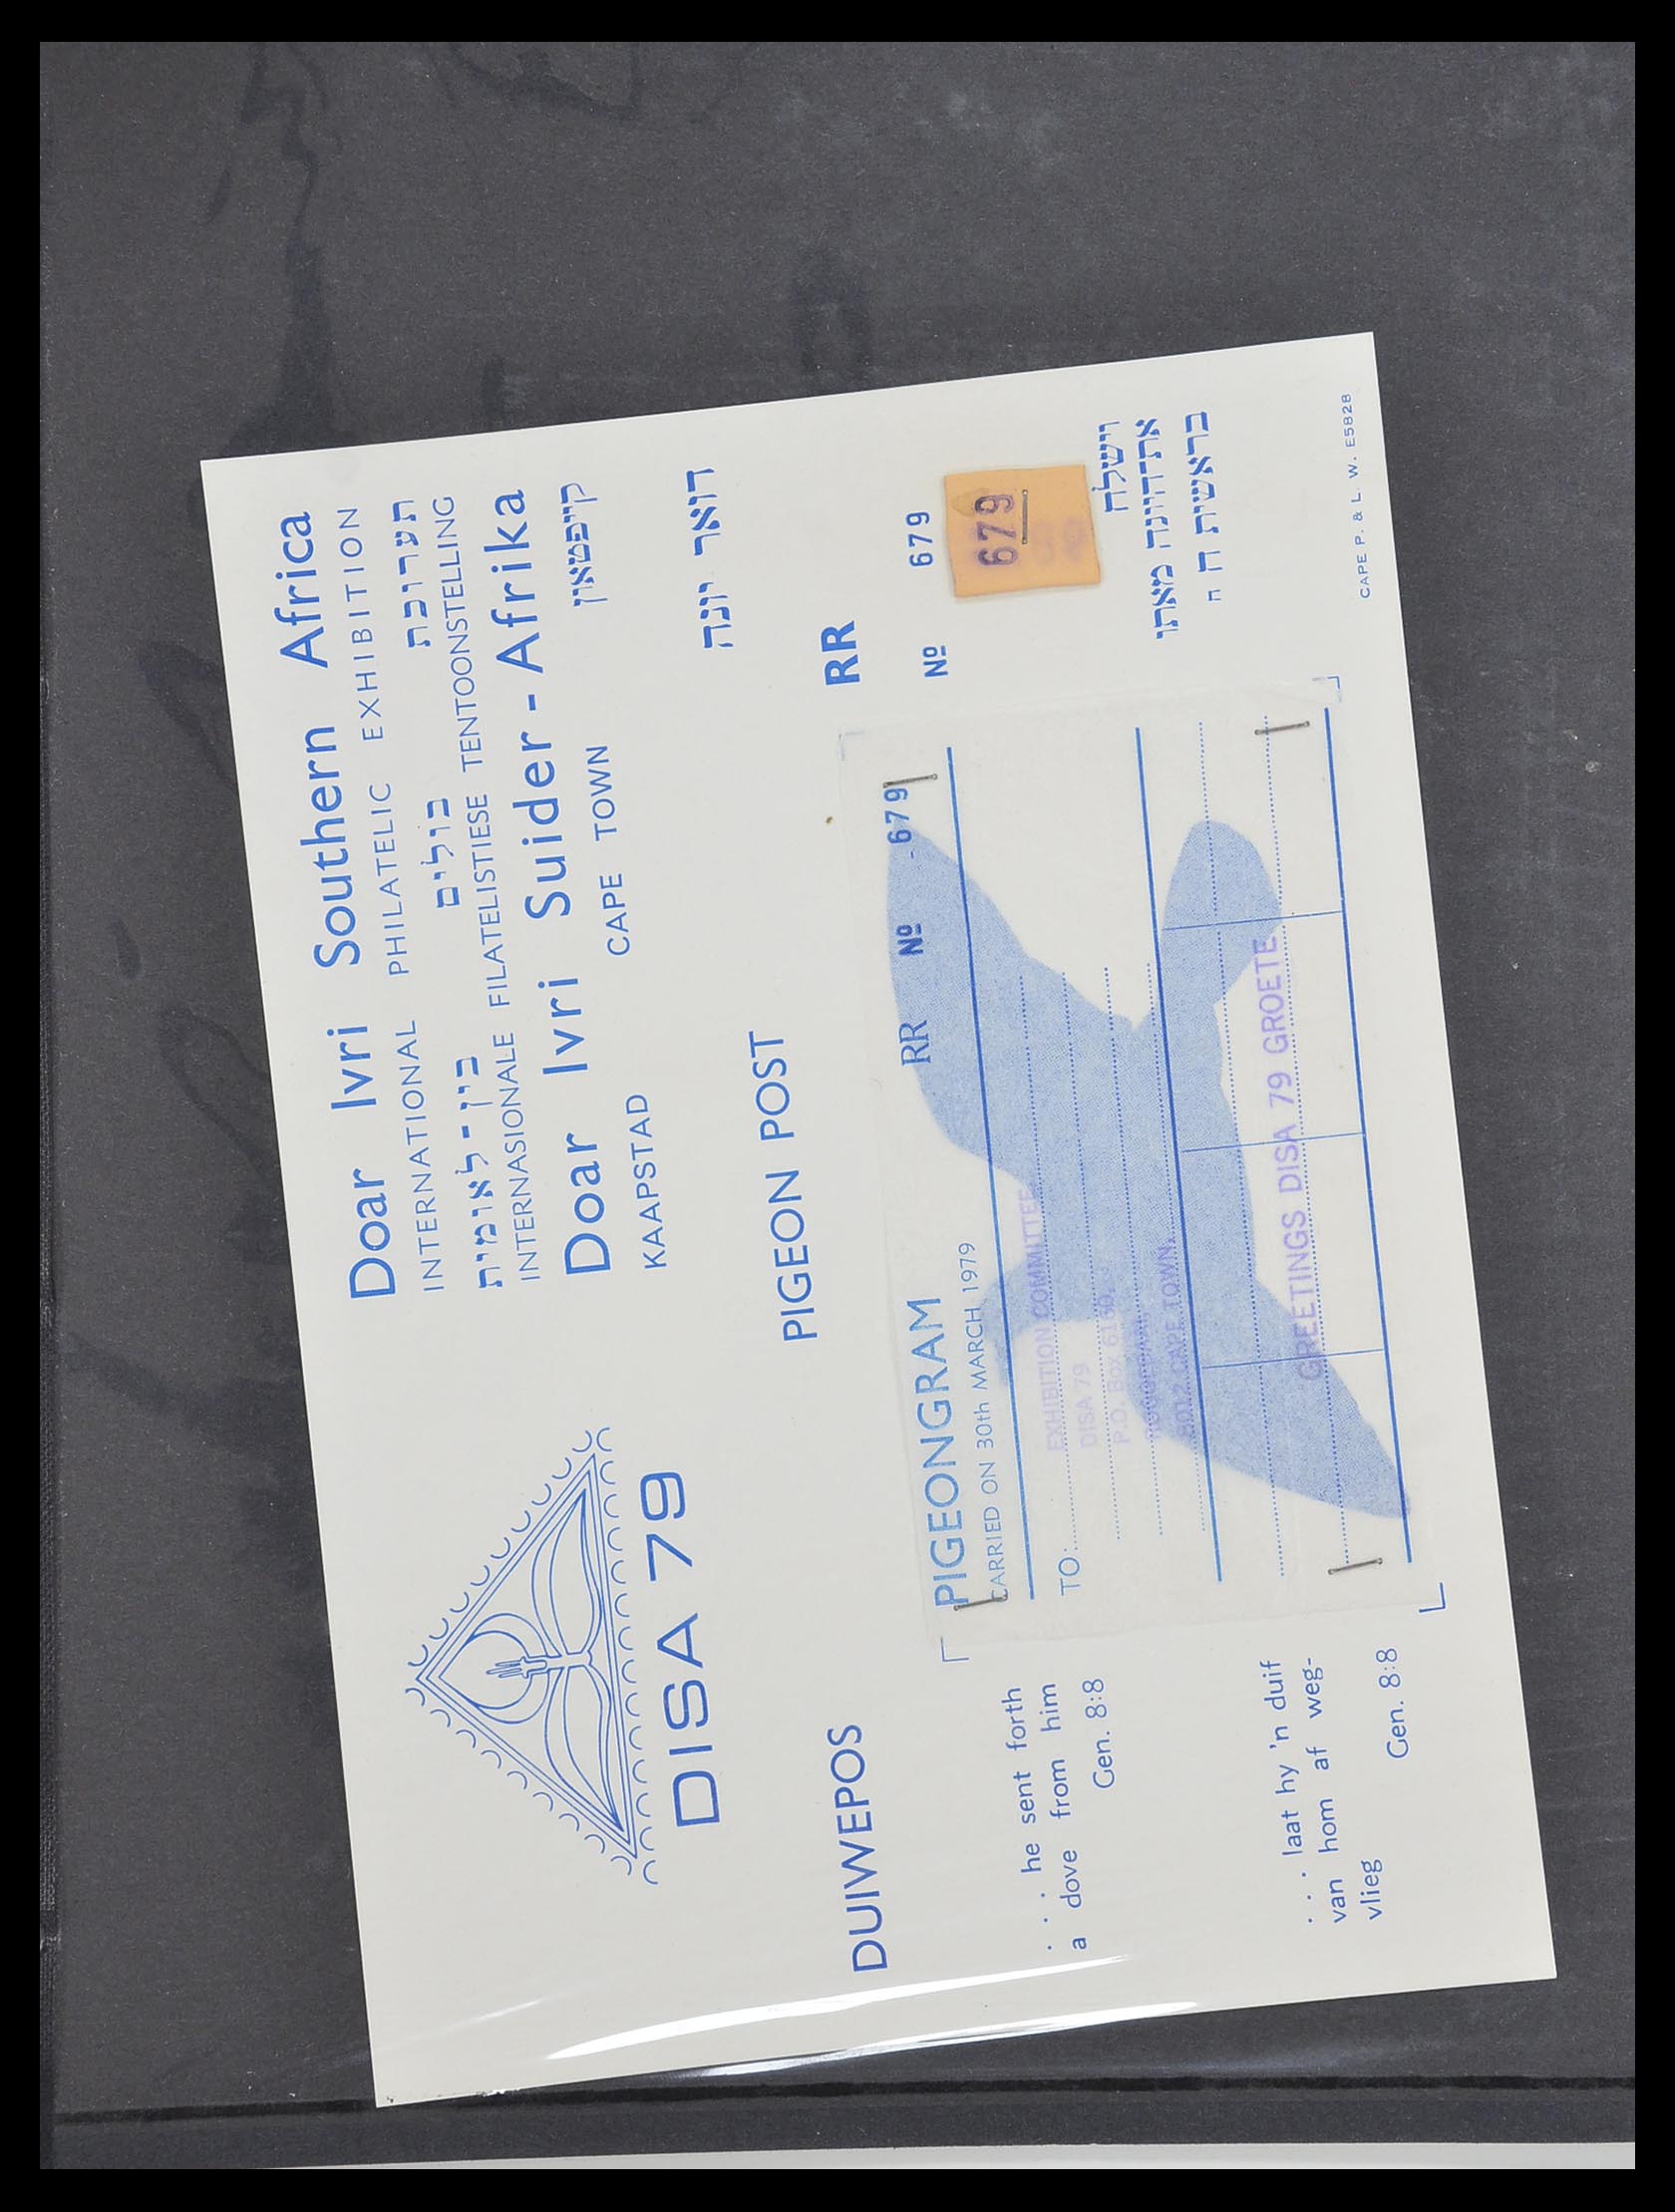 Doar Ivri Southern Africa
INTERNATIONAL PHILATELIC EXHIBITION
בין-לאומית בולים תערוכת
INTERNASIONALE FILATELISTIESE TENTOONSTELLING
Doar Ivri Suider-Afrika
KAAPSTAD CAPE TOWN קייפטאון
DISA 79
DUIWEPOS PIGEON POST דואר יונה
RR
Nº 679
679
PIGEONGRAM RR Nº 679
CARRIED ON 30th MARCH, 1979
TO:
EXHIBITION COMMITTEE
DISA 79
P.O. Box 6160,
8012 CAPE TOWN.
GREETINGS DISA 79 GROETE
. . . he sent forth
a dove from him
Gen. 8:8
. . . laat hy 'n duif
van hom af weg-
vlieg
Gen. 8:8
וישלח
את־היונה מאתו
בראשית ח ח
CAPE P. & L. W. E5828